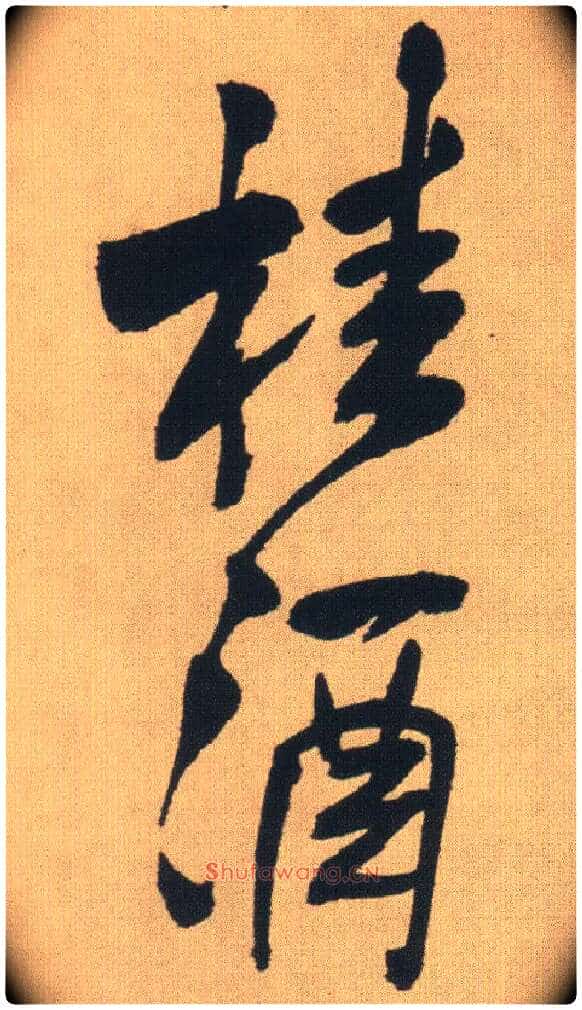 桂酒
Shufawang.CN